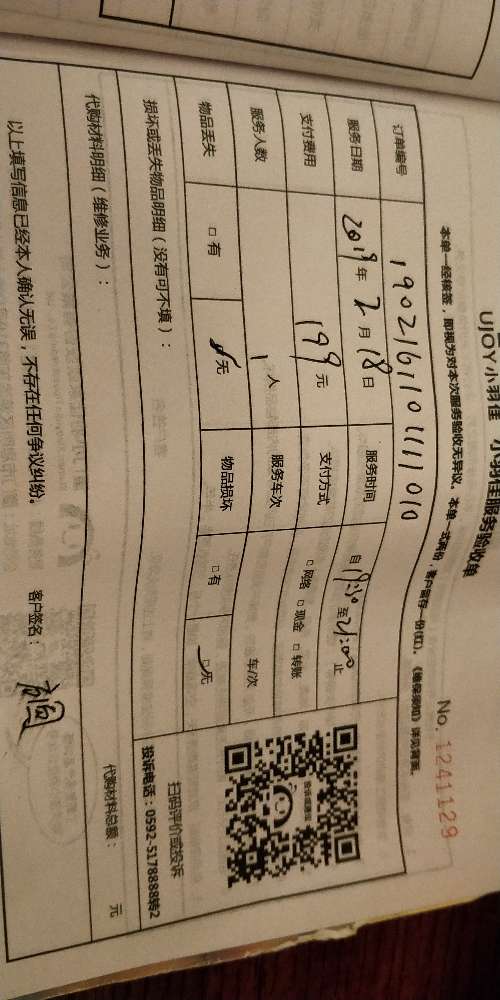 UJOY小羽佳 小羽佳服务验收单
No. 1241129
本单一经核签，即视为对本次服务验收无异议。本单一式两份，客户留存一份(红)。《维保须知》详见背面。
订单编号 19021611041111010
服务日期 2019年 2月 18日 服务时间 自19:30至21:00止
支付费用 199元 支付方式 □网络 □现金 □转账
服务人数 1人 服务车次 车/次
物品丢失 □有 □无 物品损坏 □有 □无
损坏或丢失物品明细（没有可不填）：
扫码评价或投诉
投诉电话：0592-5178888转2
代购材料明细（维修业务）：
代购材料总额： 元
以上填写信息已经本人确认无误，不存在任何争议纠纷。 客户签名：